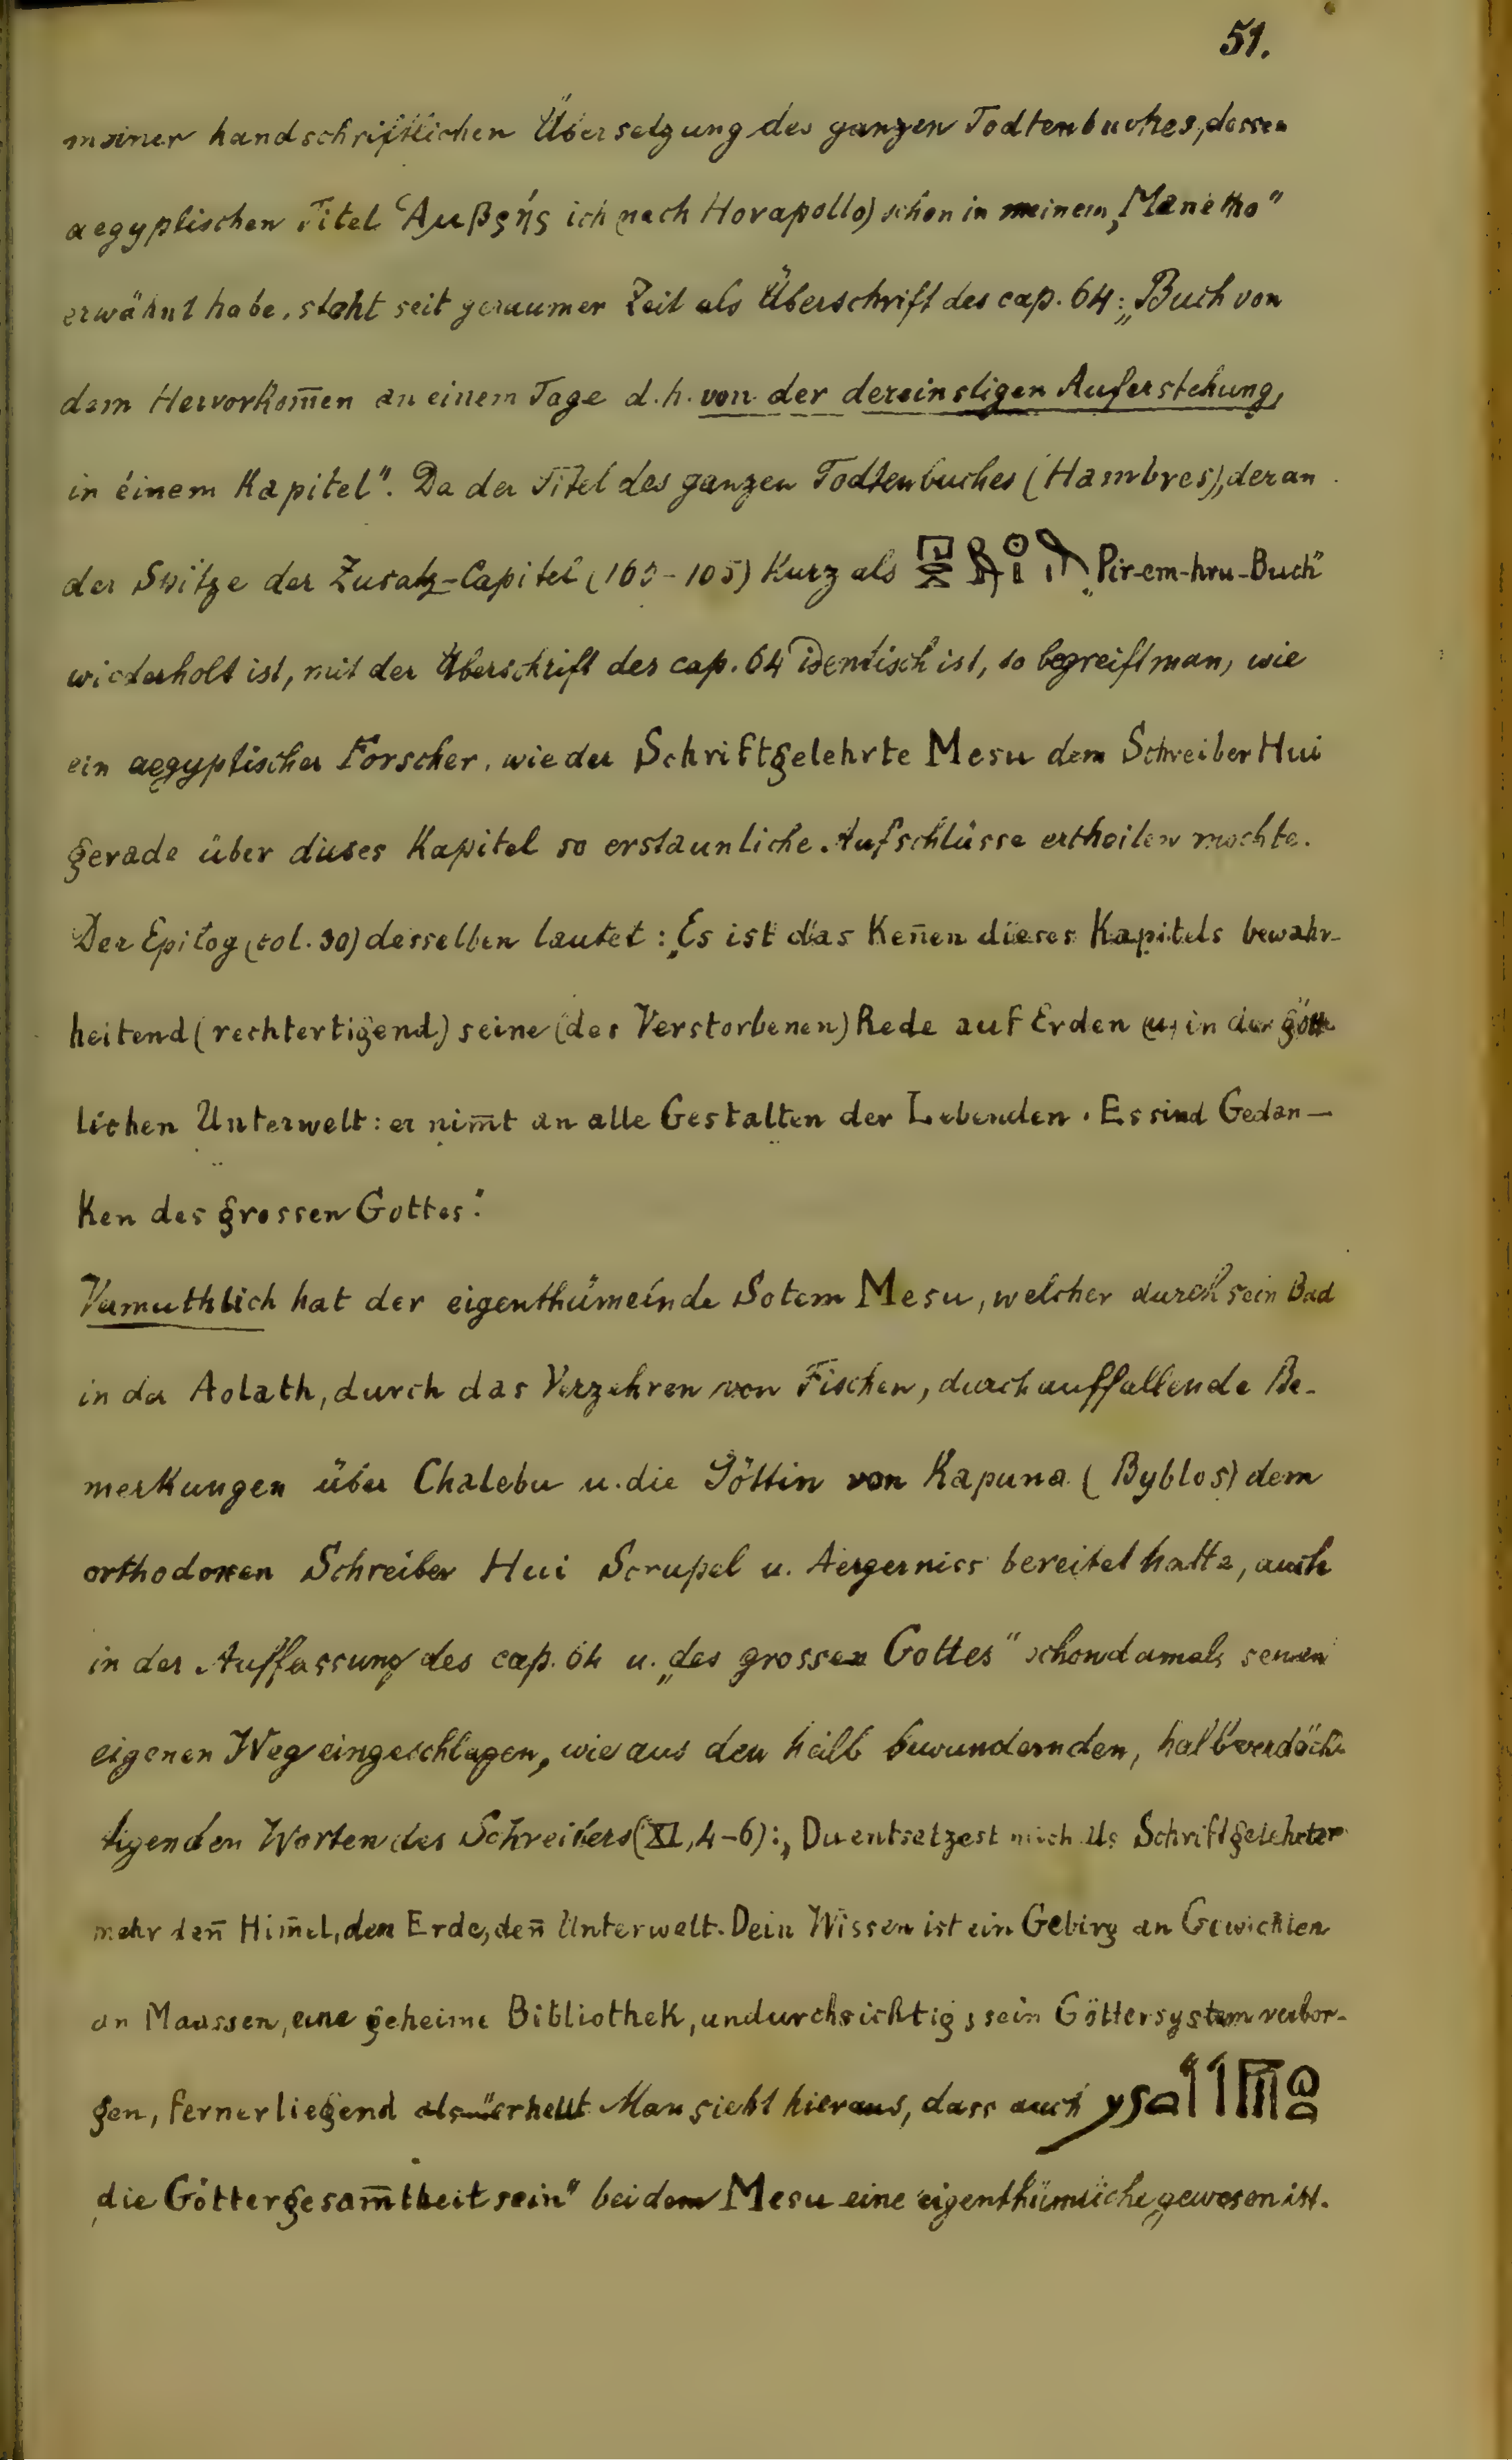 51.
meiner handschriftlichen Übersetzung des ganzen Todtenbuches, dessen
aegyptischen Titel Ἀμβρής ich (nach Horapollo) schon in meinem „Manetho"
erwähnt habe, steht seit geraumer Zeit als Überschrift des cap. 64: „Buch von
dem Hervorkom̄en an einem Tage d.h. von der dereinstigen Auferstehung,
in einem Kapitel". Da der Titel des ganzen Todtenbuches (Hambres), der an
der Spitze der Zusatz-Capitel (163-165) kurz als „Pir-em-hru-Buch"
wiederholt ist, mit der Überschrift des cap. 64 identisch ist, so begreift man, wie
ein aegyptischer Forscher, wie der Schriftgelehrte Mesu dem Schreiber Hui
gerade über dieses Kapitel so erstaunliche Aufschlüsse ertheilen mochte.
Der Epilog (col. 30) desselben lautet: „Es ist das Ken̄en dieses Kapitels bewahr-
heitend (rechtfertigend) seine (des Verstorbenen) Rede auf Erden (u) in der gött-
lichen Unterwelt: er nim̄t an alle Gestalten der Lebenden. Es sind Gedan-
ken des grossen Gottes".
Vermuthlich hat der eigenthümelnde Sotem Mesu, welcher durch sein Bad
in der Aolath, durch das Verzehren von Fischen, durch auffallende Be-
merkungen über Chalebu u. die Göttin von Kapuna (Byblos) dem
orthodoxen Schreiber Hui Scrupel u. Aergerniss bereitet hatte, auch
in der Auffassung des cap. 64 u. „des grossen Gottes" schon damals seinen
eigenen Weg eingeschlagen, wie aus den halb bewundernden, halb verdäch-
tigenden Worten des Schreibers (XI, 4-6): „Du entsetzest mich als Schriftgelehrter
mehr den̄ Him̄el, den̄ Erde, den̄ Unterwelt. Dein Wissen ist ein Gebirg an Gewichten
an Maassen, eine geheime Bibliothek, undurchsichtig, sein Göttersystem verbor-
gen, fernerliegend als" erhellt. Man sieht hieraus, dass auch
„die Göttergesam̄theit sein" bei dem Mesu eine eigenthümliche gewesen ist.